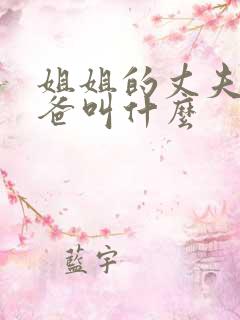 姐姐的丈夫
爸叫什麼
藍宇